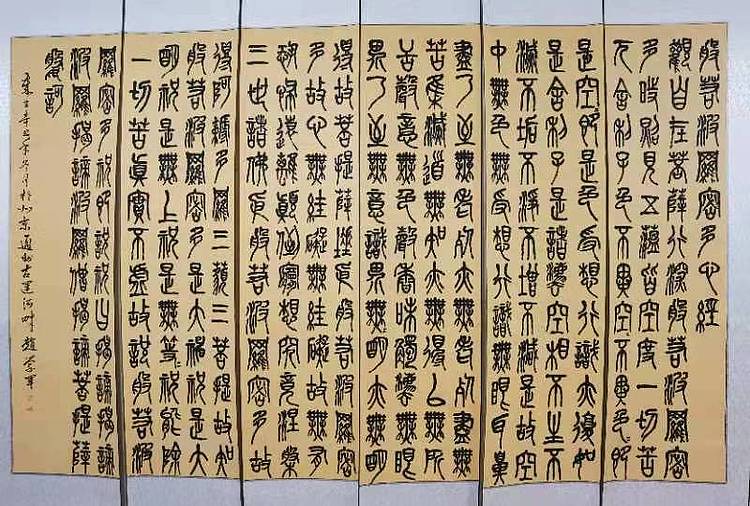 般若波羅密多心經
觀自在菩薩行深般若波羅密
多時照見五蘊皆空度一切苦
厄舍利子色不異空不異色即
是空即是色受想行識亦復如
是舍利子是諸法空相不生不
滅不垢不淨不增不減是故空
中無色無受想行識無眼耳鼻
盡乃至無老死亦無老死盡無
苦集滅道無知亦無得以無所
舌聲意無色聲香味觸法無眼
界乃至無意識界無明亦無明
得故菩提薩埵依般若波羅密
多故心無罣礙無罣礙故無有
恐怖遠離顛倒夢想究竟涅槃
三世諸佛依般若波羅密多故
得阿耨多羅三藐三菩提故知
般若波羅密多是大神咒是大
明咒是無上咒是無等咒能除
一切苦真實不虛故說般若波
羅密多咒即說咒曰揭諦揭諦
波羅揭諦波羅僧揭諦菩提薩
婆訶
辛丑年冬月於北京通州古運河畔趙